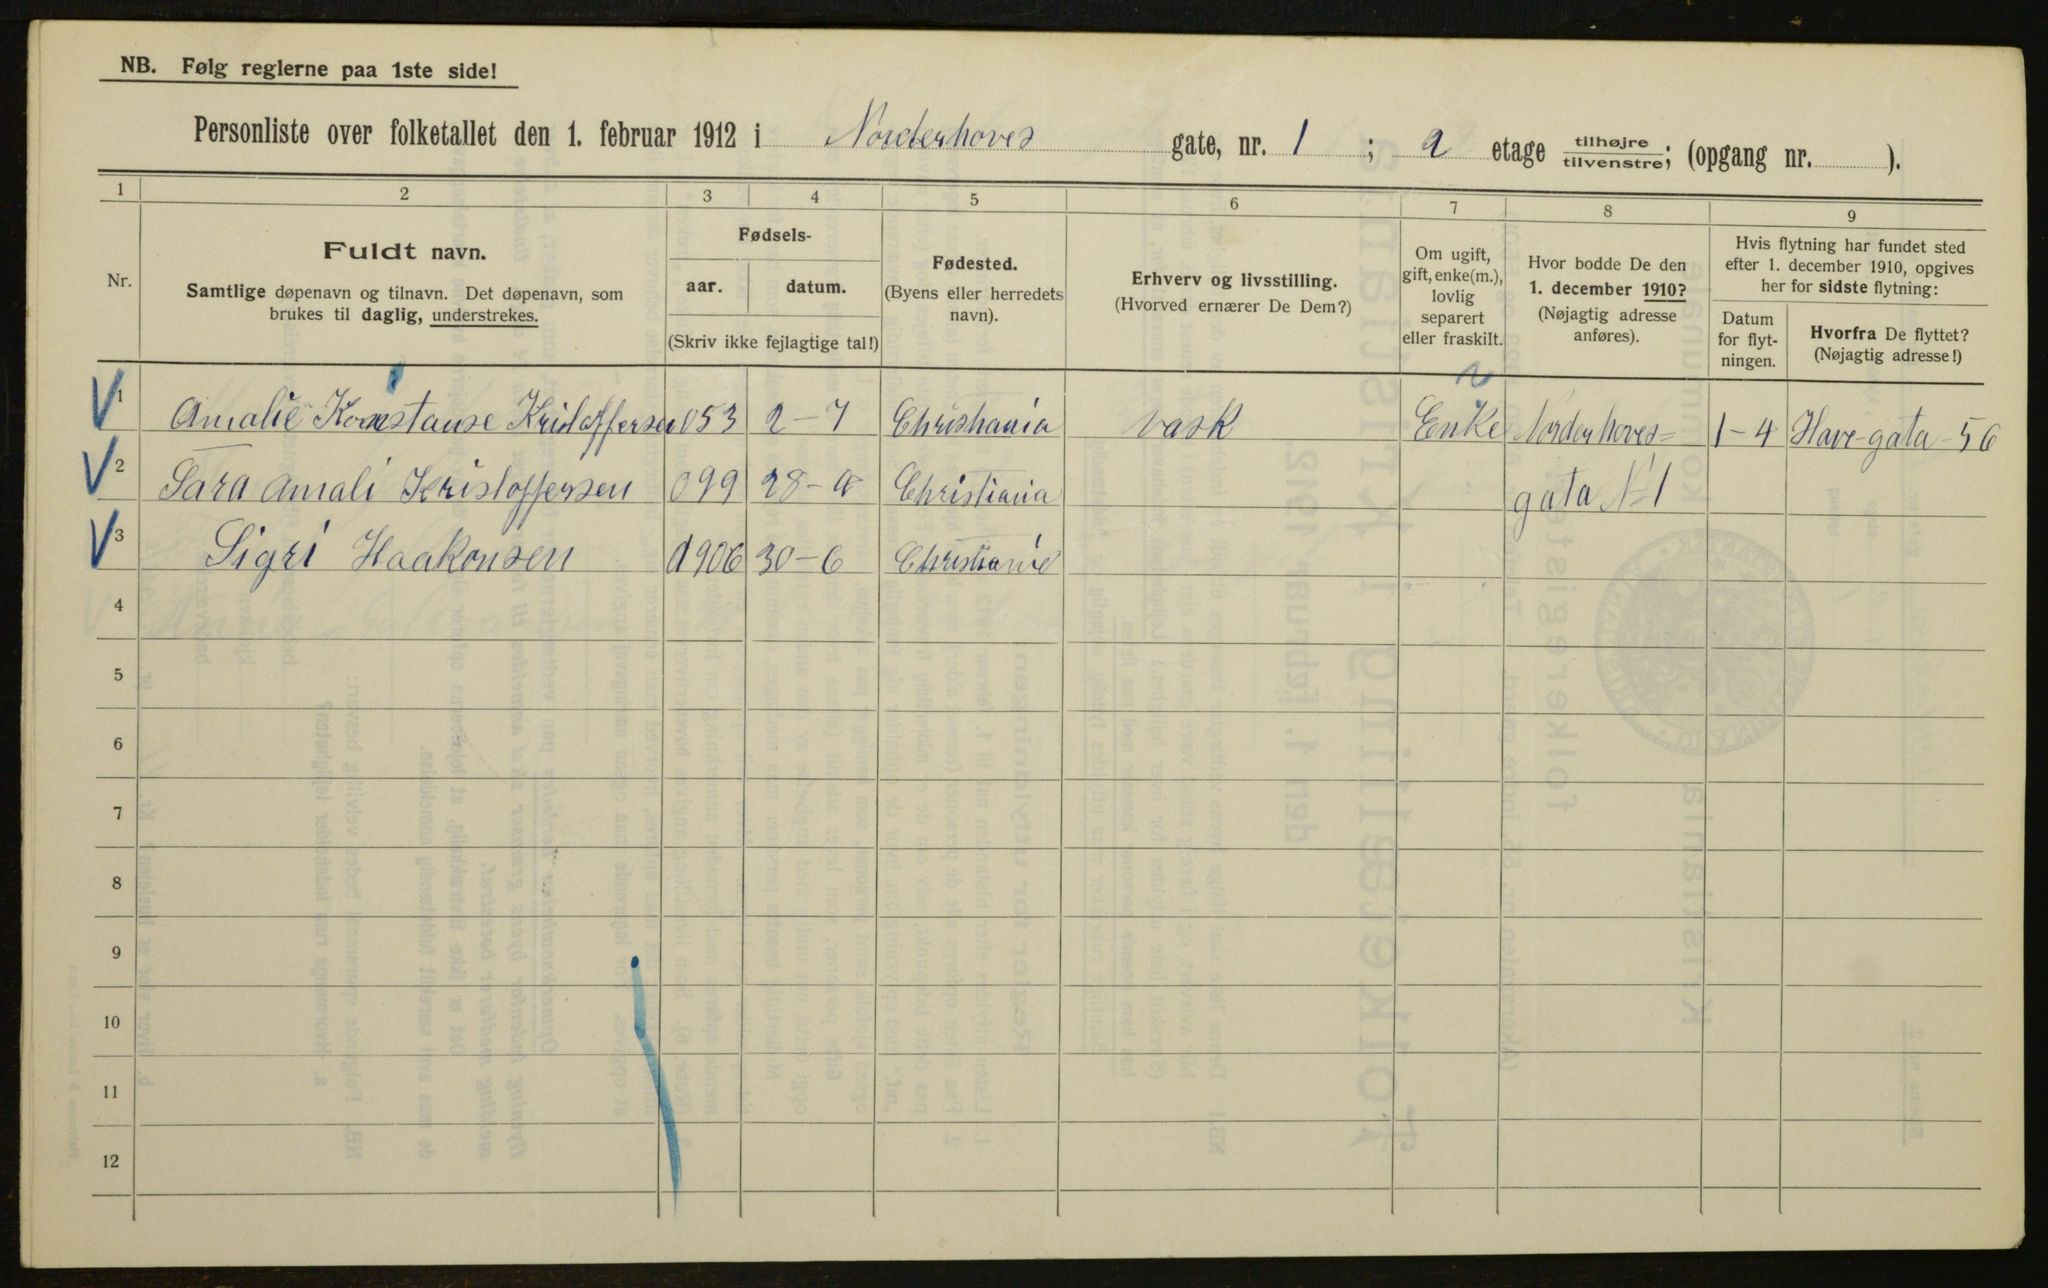 NB. Følg reglerne paa 1ste side!
Personliste over folketallet den 1. februar 1912 i Norderhoves gate, nr. 1 ; 2 etage tilhøjre tilvenstre; (opgang nr. ).
1 2 3 4 5 6 7 8 9
Nr.
Fuldt navn.
Samtlige døpenavn og tilnavn. Det døpenavn, som
brukes til daglig, understrekes.
Fødsels-
aar. datum.
(Skriv ikke fejlagtige tal!)
Fødested.
(Byens eller herredets
navn).
Erhverv og livsstilling.
(Hvorved ernærer De Dem?)
Om ugift,
gift, enke(m.),
lovlig
separert
eller fraskilt.
Hvor bodde De den
1. december 1910?
(Nøjagtig adresse
anføres).
Hvis flytning har fundet sted
efter 1. december 1910, opgives
her for sidste flytning:
Datum
for flyt-
ningen.
Hvorfra De flyttet?
(Nøjagtig adresse!)
1 Amalie Konstanse Kristoffersen 053 2-7 Christiania vask Enke Norderhoves= 1-4 Have-gata-56
2 Sara Amali Kristoffersen 099 28- Christiania gata No 1
3 Sigri Haakonsen 906 30-6 Christianie
4
5
6
7
8
9
10
11
12